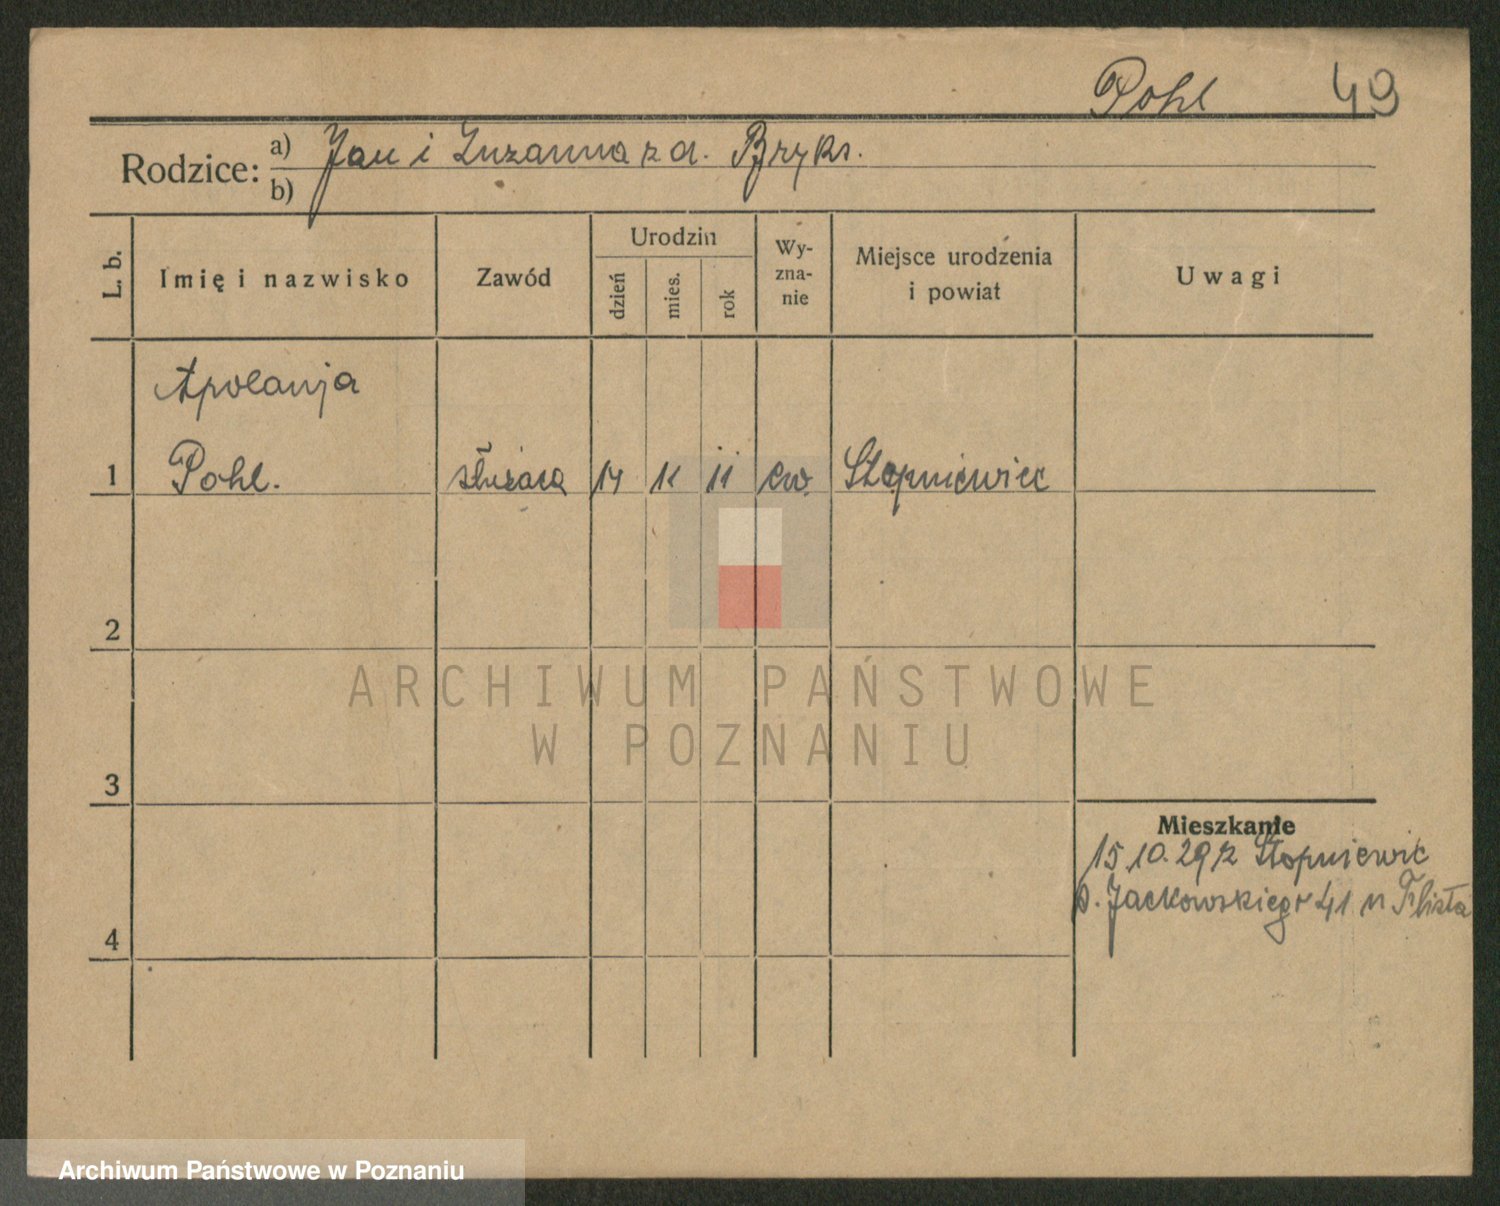 Pohl 49
Rodzice: a) Jan i Zuzanna z d. Bryks.
b)
L. b. Imię i nazwisko Zawód Urodzin dzień mies. rok Wyznanie Miejsce urodzenia i powiat Uwagi
Apolanja
1 Pohl. służąca 14 11 11 ew. Stopniewiec
2
ARCHIWUM PAŃSTWOWE
W POZNANIU
3
Mieszkanie
15.10.29 z Stopniewic
p. Jackowskiego 41 u Flista
4
Archiwum Państwowe w Poznaniu